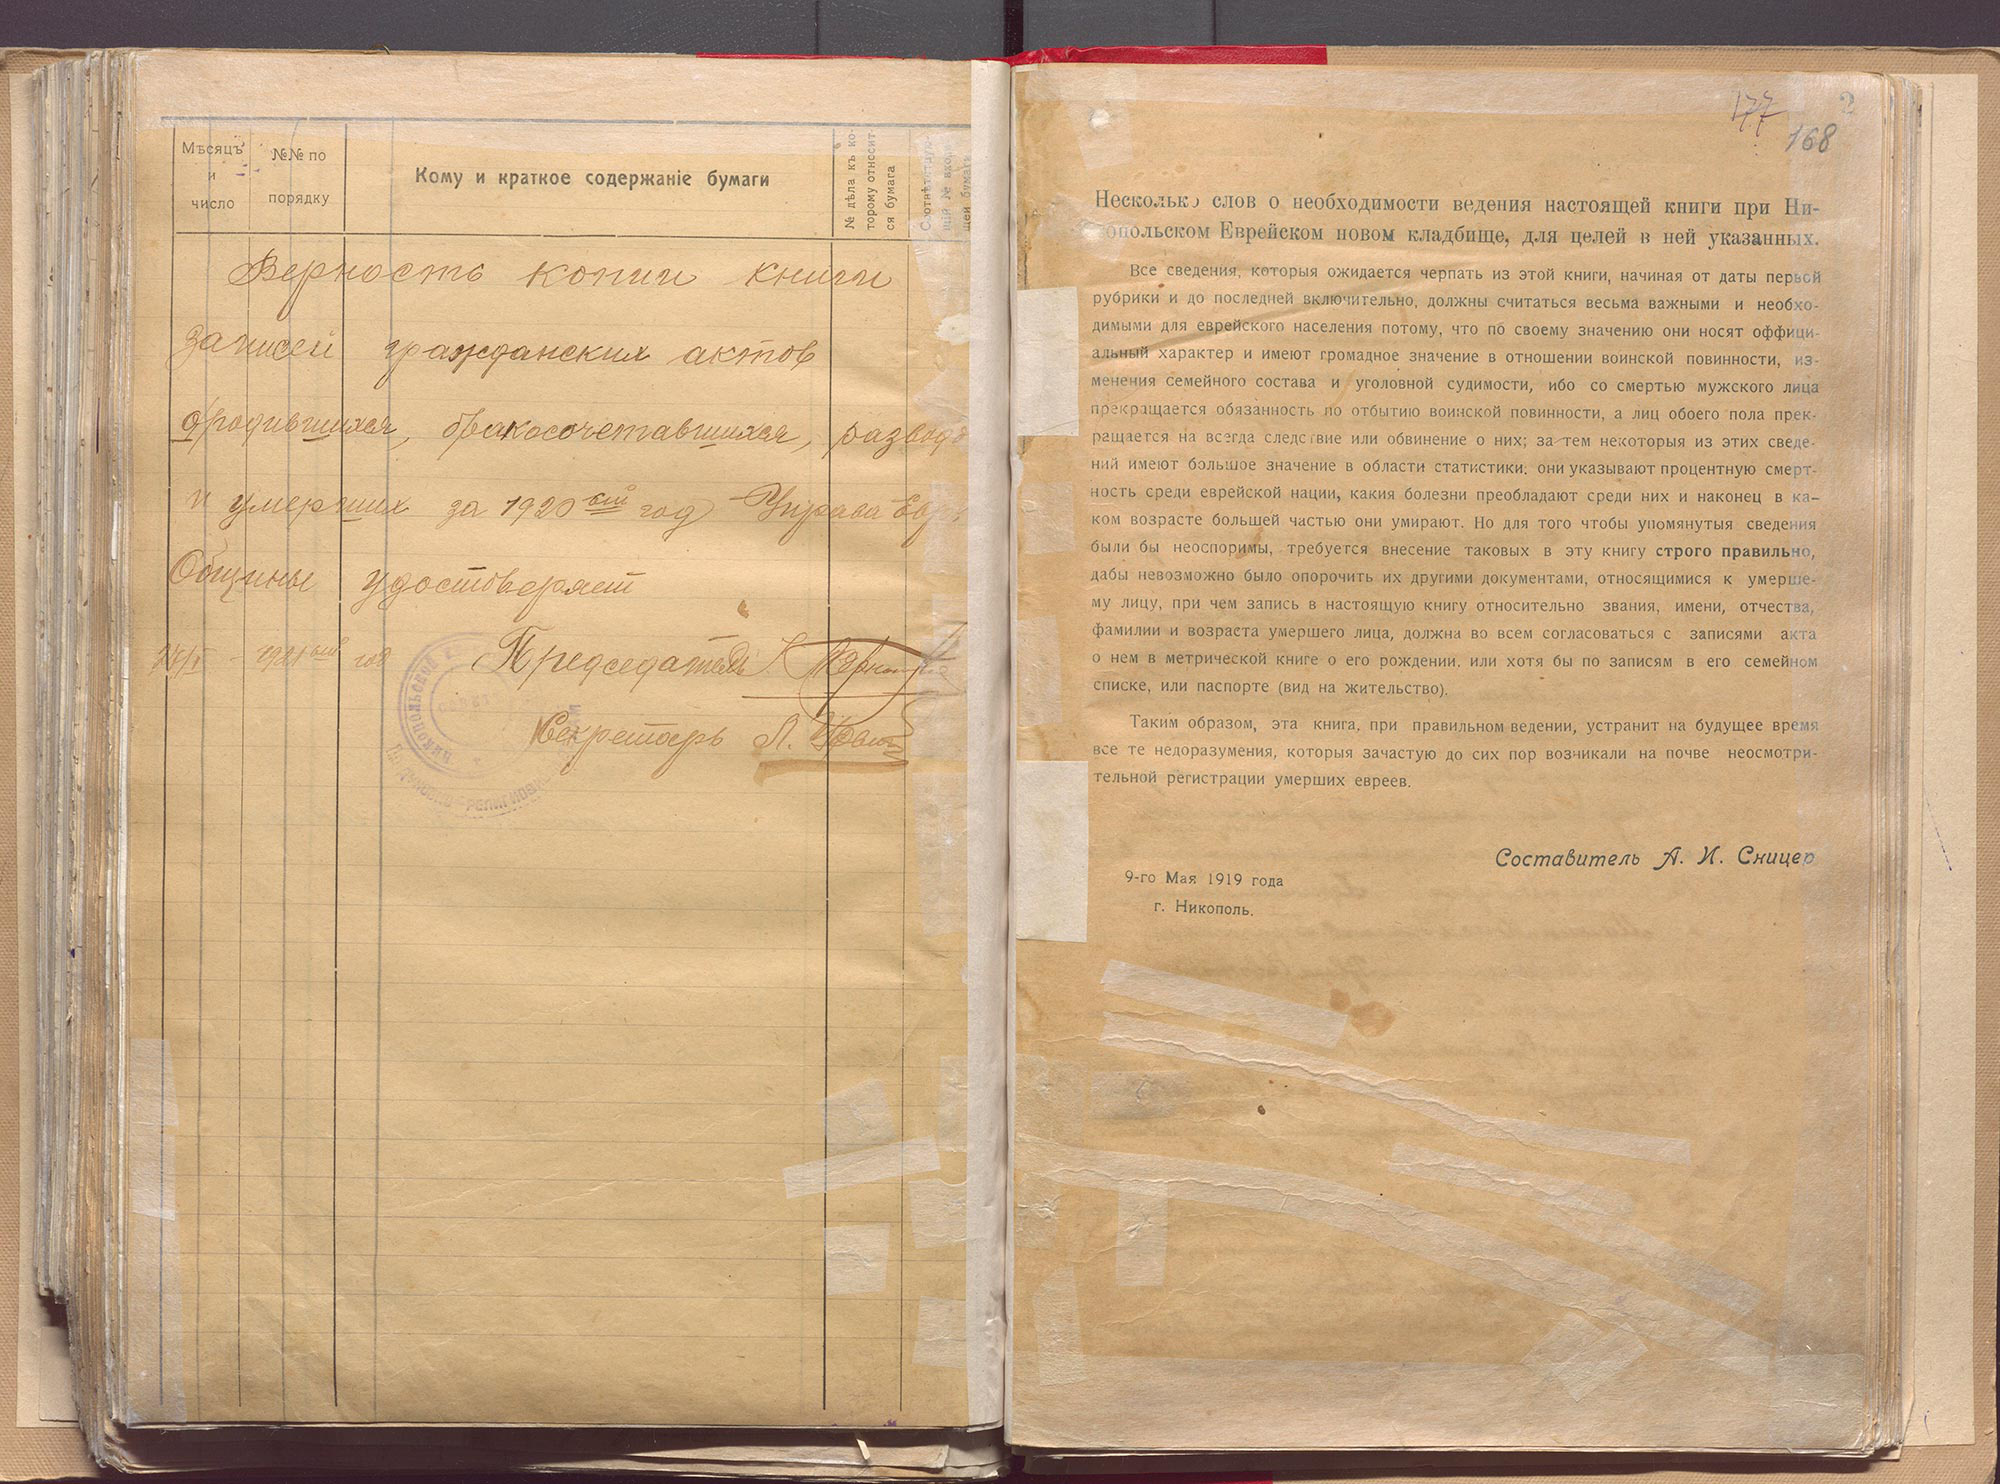 Мѣсяцъ
и
число
№№ по
порядку
Кому и краткое содержаніе бумаги
№ дѣла къ ко-
торому относит-
ся бумага
Верность копии книги
записей гражданских актов
о родившихся, бракосочетавшихся, развод
и умерших за 1920 ый год Управа Евр
Общины удостоверяет
1921 год
Председатель
Секретарь Л.
177
2
168
Несколько слов о необходимости ведения настоящей книги при Ни-
копольском Еврейском новом кладбище, для целей в ней указанных.
Все сведения, которыя ожидается черпать из этой книги, начиная от даты первой
рубрики и до последней включительно, должны считаться весьма важными и необхо-
димыми для еврейского населения потому, что по своему значению они носят оффици-
альный характер и имеют громадное значение в отношении воинской повинности, из-
менения семейного состава и уголовной судимости, ибо со смертью мужского лица
прекращается обязанность по отбытию воинской повинности, а лиц обоего пола прек-
ращается на всегда следствие или обвинение о них; за тем некоторыя из этих сведе-
ний имеют большое значение в области статистики: они указывают процентную смерт-
ность среди еврейской нации, какия болезни преобладают среди них и наконец в ка-
ком возрасте большей частью они умирают. Но для того чтобы упомянутыя сведения
были бы неоспоримы, требуется внесение таковых в эту книгу строго правильно,
дабы невозможно было опорочить их другими документами, относящимися к умерше-
му лицу, при чем запись в настоящую книгу относительно звания, имени, отчества,
фамилии и возраста умершего лица, должна во всем согласоваться с записями акта
о нем в метрической книге о его рождении, или хотя бы по записям в его семейном
списке, или паспорте (вид на жительство).
Таким образом, эта книга, при правильном ведении, устранит на будущее время
все те недоразумения, которыя зачастую до сих пор возникали на почве неосмотри-
тельной регистрации умерших евреев.
Составитель А. И. Сницер
9-го Мая 1919 года
г. Никополь.